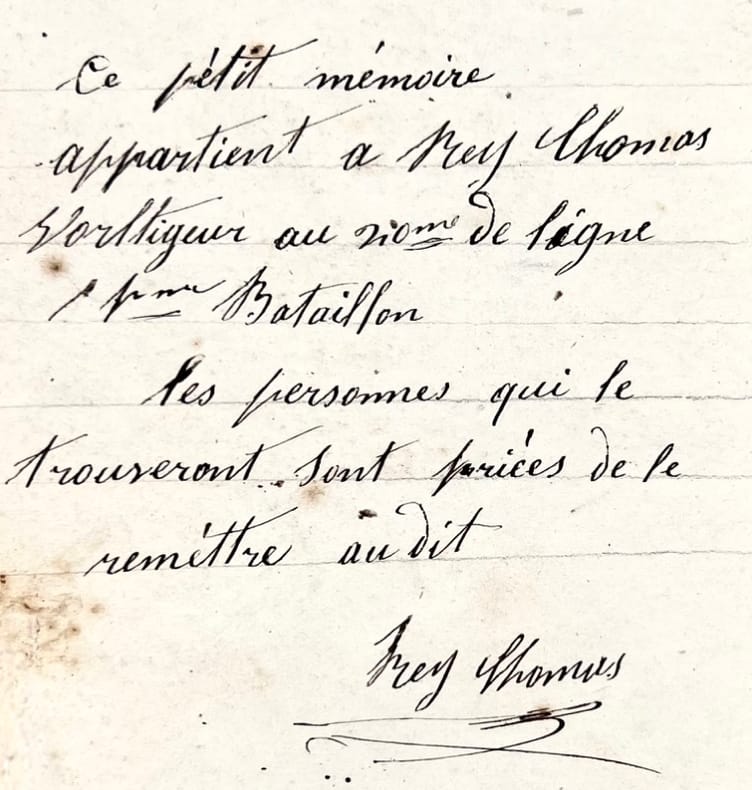 Ce pétit mémoire
appartient a Rey Thomas
Vorltigeur au de ligne
Bataillon
les personnes qui le
trouveront sont priées de le
reméttre au dit
Rey Thomas